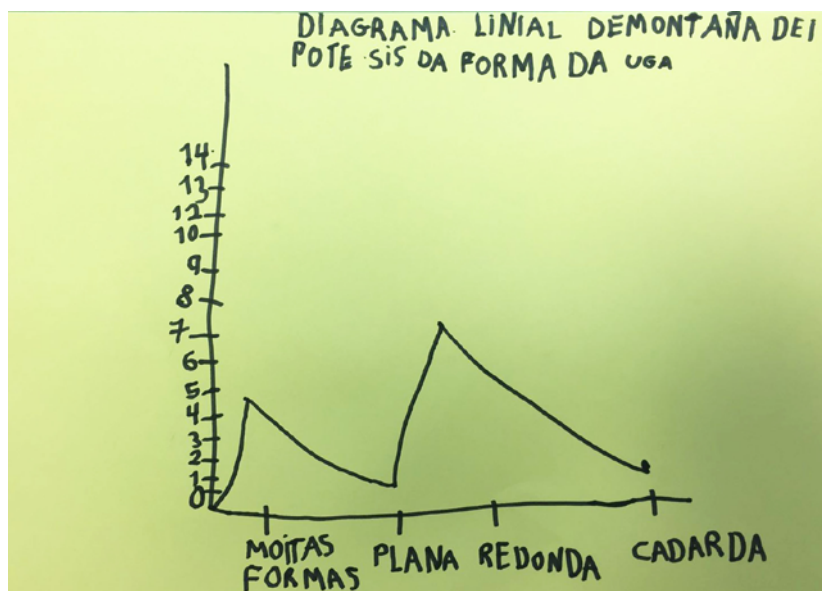 DIAGRAMA LINIAL DEMONTAÑA DEI
POTE SIS DA FORMA DA UGA
14
13
12
10
9
8
7
6
5
4
3
2
1
0
MOITAS
FORMAS
PLANA
REDONDA
CADARDA